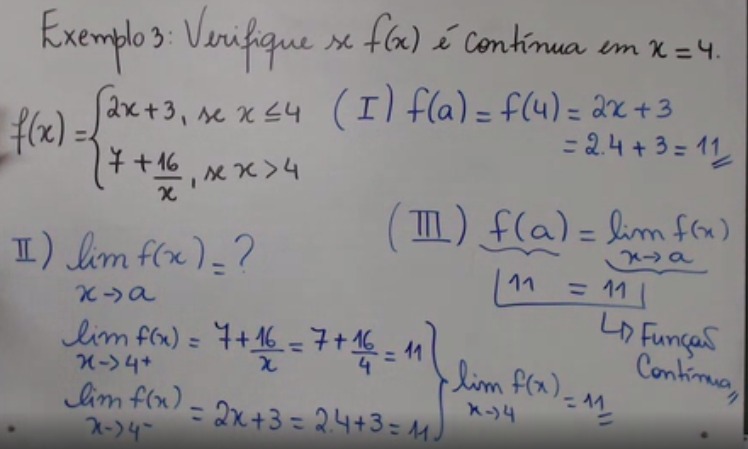 Exemplo 3: Verifique se f(x) é contínua em x = 4.
f(x) = { 2x + 3, se x ≤ 4
7 + 16/x, se x > 4
(I) f(a) = f(4) = 2x + 3
= 2.4 + 3 = 11
II) lim f(x) = ?
x → a
lim f(x) = 7 + 16/x = 7 + 16/4 = 11
x → 4+
lim f(x) = 2x + 3 = 2.4 + 3 = 11
x → 4-
} lim f(x) = 11
x → 4
(III) f(a) = lim f(x)
x → a
11 = 11
↳ Função
Contínua